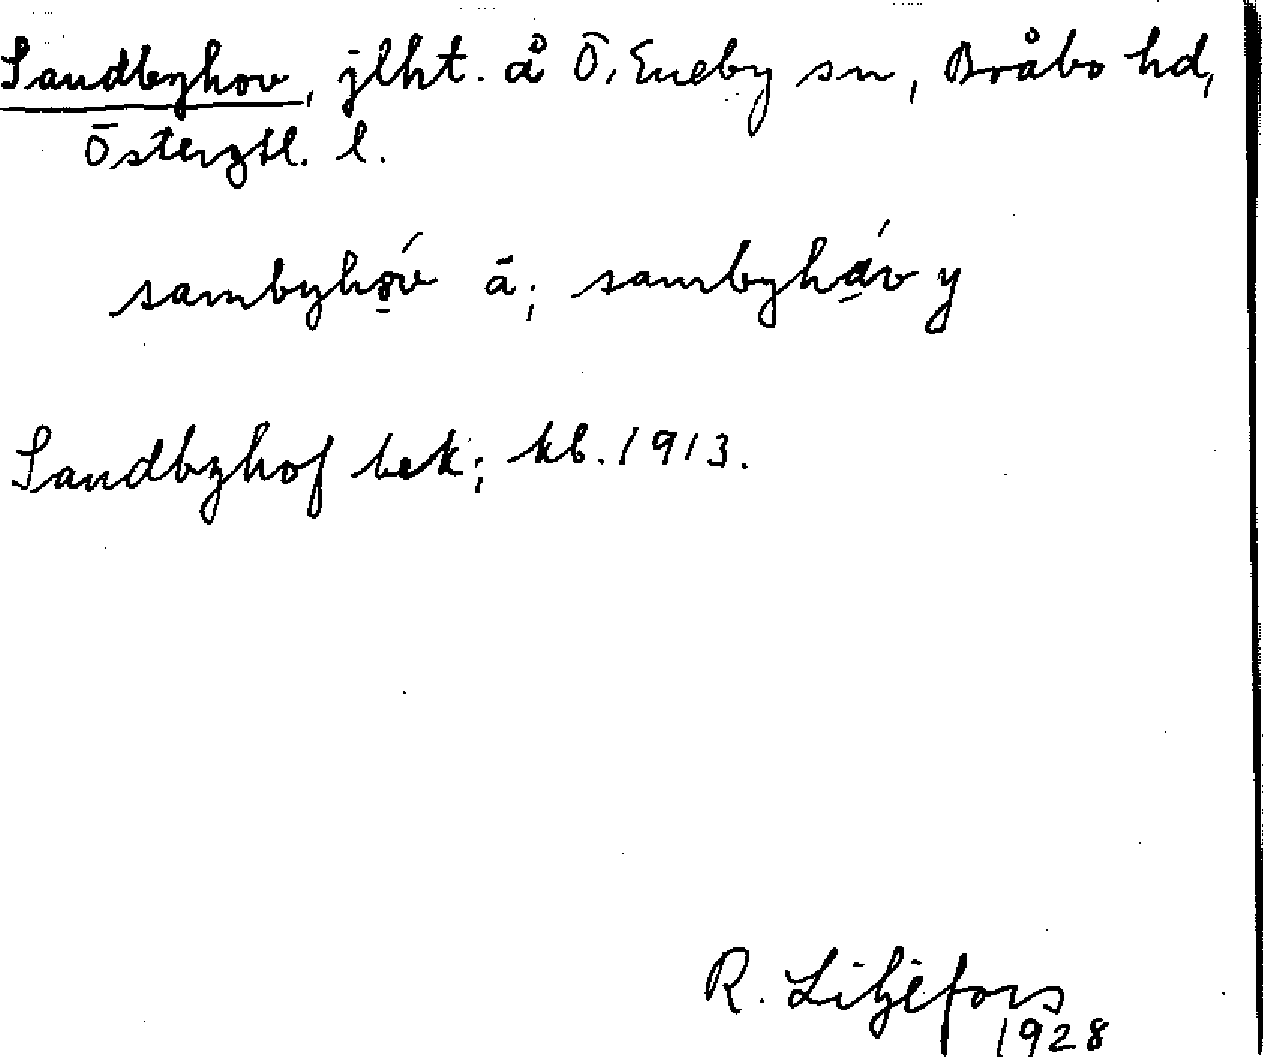 Sandbyhov, jlht. å Ö. Eneby sn, Bråbo hd,
Östergtl. l.
sambyhǫ́v ä; sambyhá̱v y
Sandbyhof bek; kb. 1913.
R. Liljefors
1928